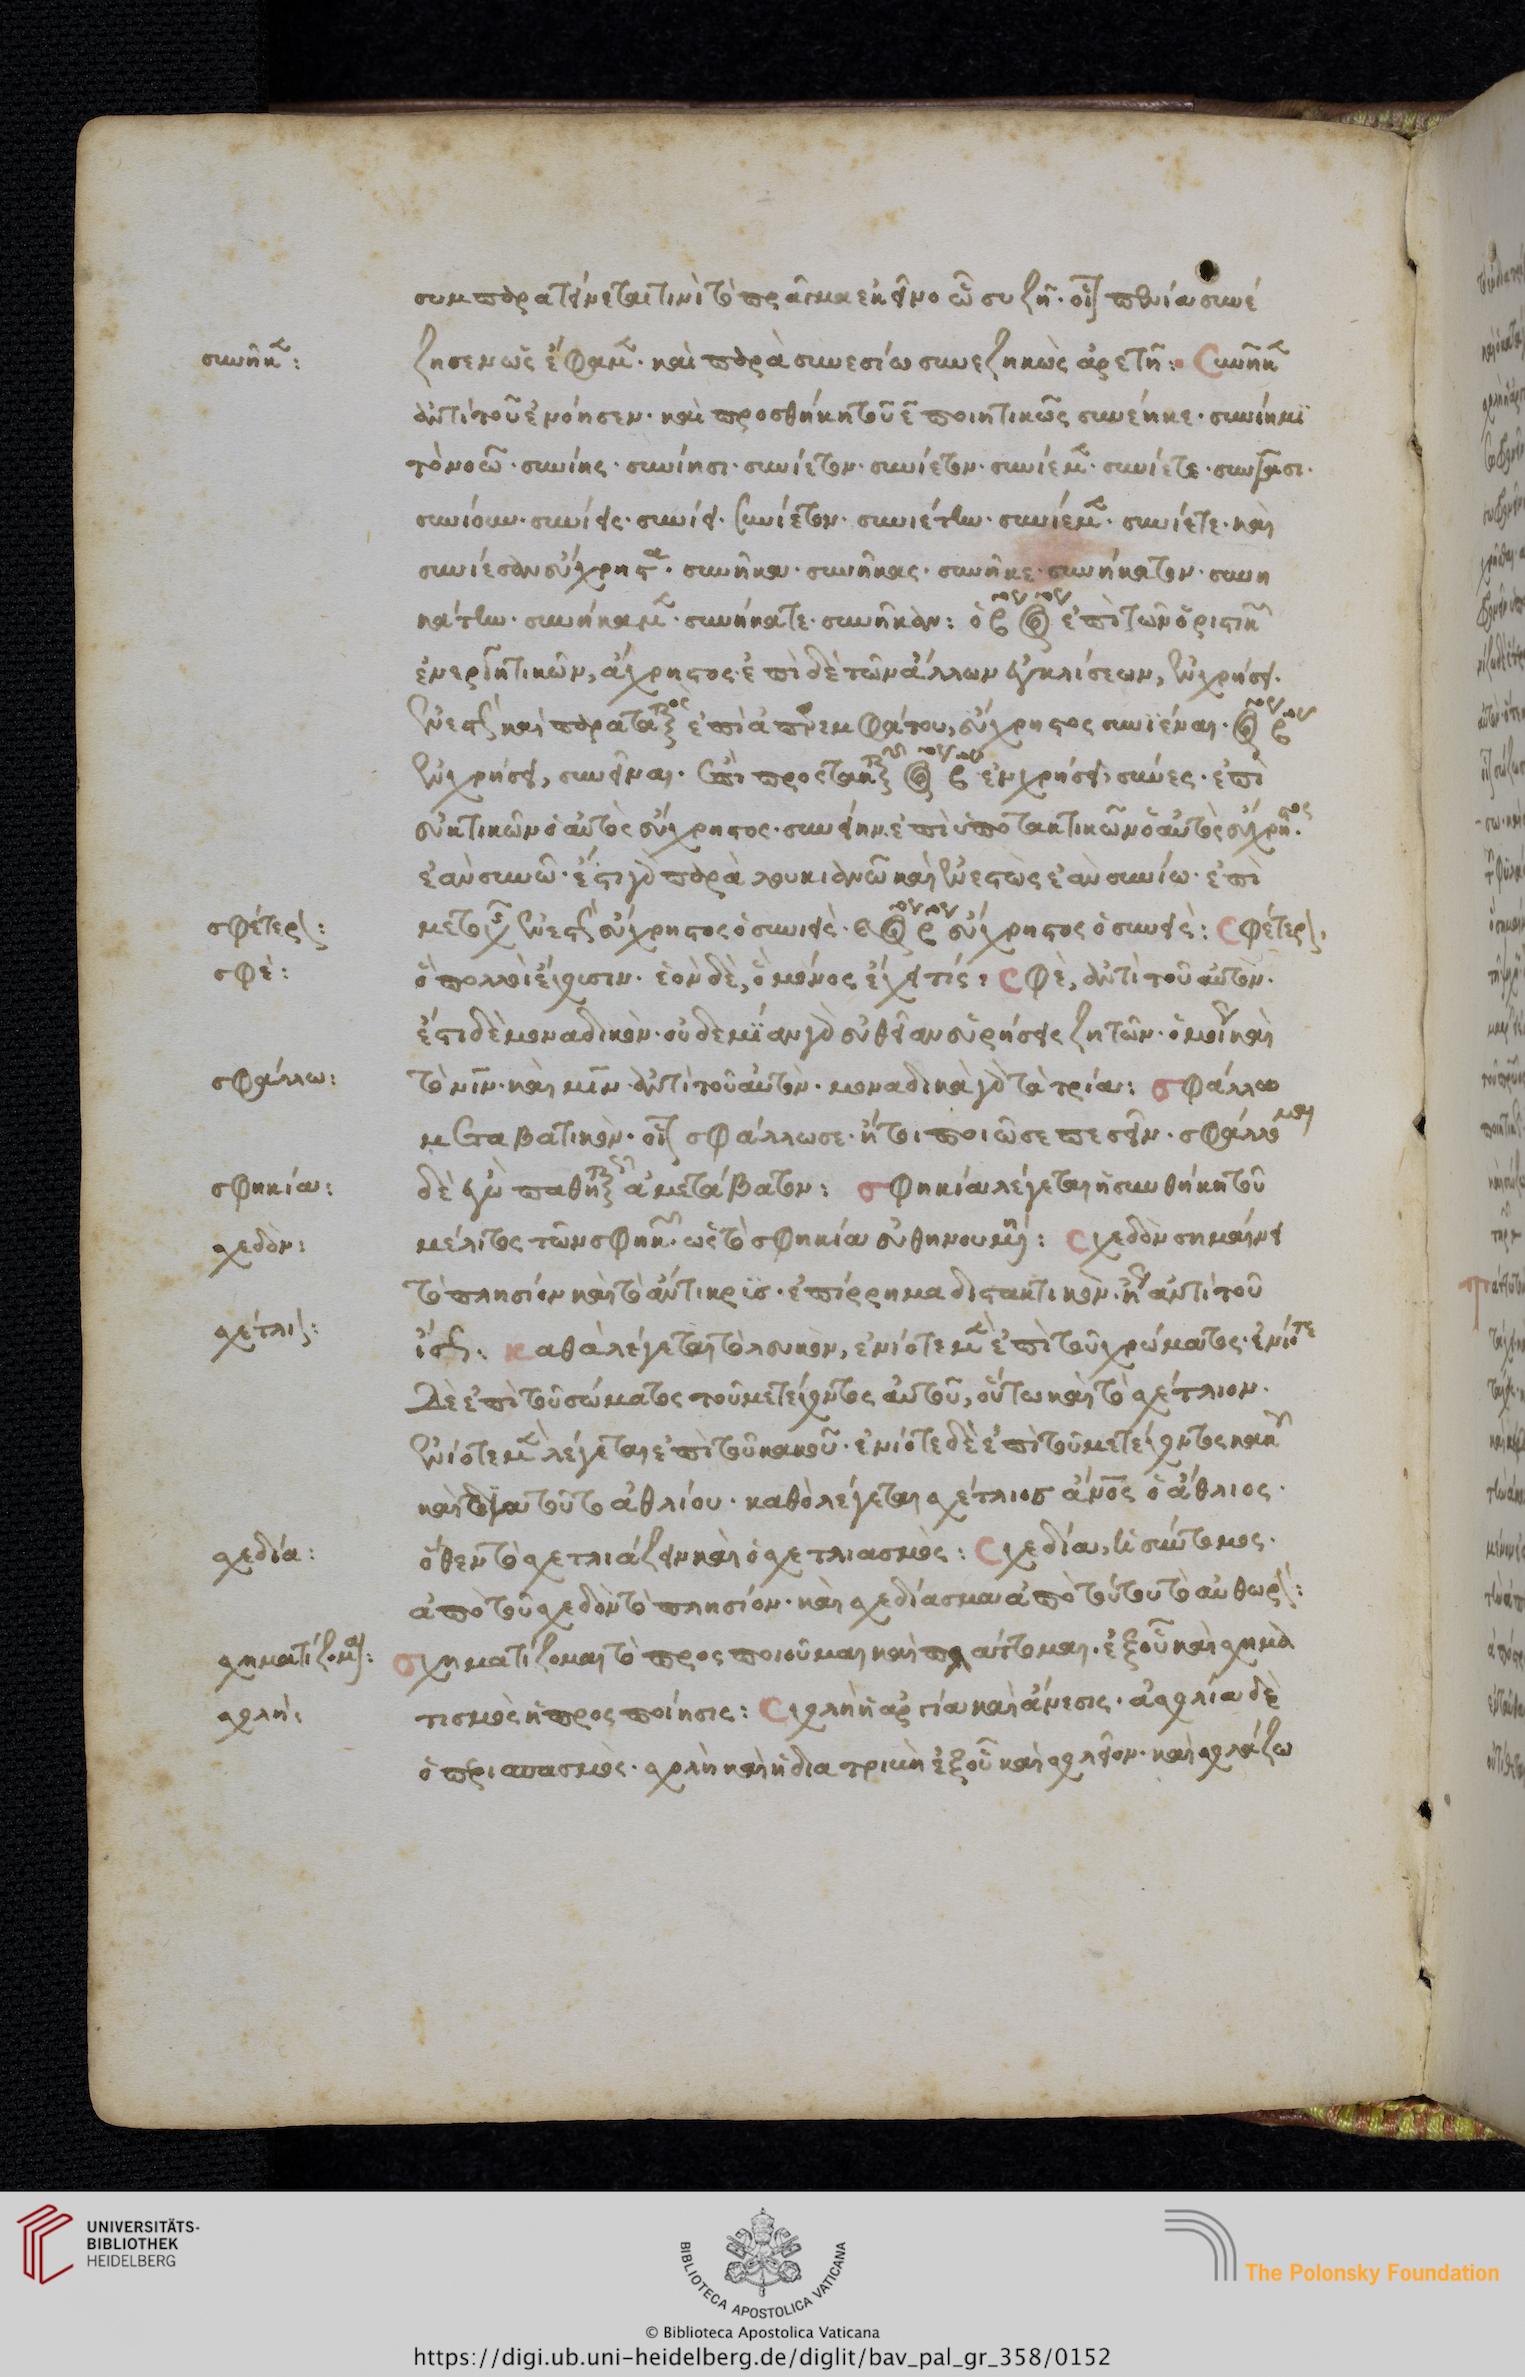 συμπαρατείνεταί τινι τὸ πρᾶγμα ἐκείνο ᾧ συζῆ· οἷον πενία συνέ
συνῆκε:
ζησεν ὡς ἔφαμεν· καὶ παρὰ συνεσίω συνεζηκὼς ἀρετῆ: Συνῆκεν
ἀντὶ τοῦ ἐνόησεν· καὶ προσθήκη τοῦ ε ποιητικῶς συνέηκε· συνίημι
τὸ νοῶ· συνίης· συνίησι· συνίετον· συνίετον· συνίεμεν· συνίετε· συνιᾶσι·
συνίουν· συνίεις· συνίει· συνίετον· συνιέτην· συνίεμεν· συνίετε· καὶ
συνίεσαν εὔχρηστα· συνῆκα· συνῆκας· συνῆκε· συνήκατον· συνη
κάτην· συνήκαμεν· συνήκατε· συνῆκαν: ὁ ἐπὶ τῶν ὁριστικῶν
ἐνεργητικῶν, ἄχρηστος· ἐπὶ δὲ τῶν ἄλλων ἐγκλίσεων, ἐν χρήσει·
ἐνεστὼς καὶ παρατατικὸς ἐπὶ ἀπαρεμφάτου, εὔχρηστος συνιέναι·
ἐν χρήσει, συνεῖναι· ἐπὶ προστακτικῶν ἐν χρήσει, σύνες· ἐπὶ
εὐκτικῶν ὁ αὐτὸς εὔχρηστος· συνείην· ἐπὶ ὑποτακτικῶν ὁ αὐτὸς εὔχρηστος·
ἐὰν συνῶ· ἔστι γὰρ παρὰ λουκιανῶ καὶ ἐνεστὼς ἐὰν συνίω· ἐπὶ
σφέτερον:
μετοχῶν ἐνεστὼς εὔχρηστος ὁ συνιείς· εὔχρηστος ὁ συνείς: Σφέτερον,
σφέ:
ὃ πολλοὶ ἔχουσιν· ἑὸν δὲ, ὃ μόνος ἔχει τίς: Σφὲ, ἀντὶ τοῦ αὐτὸν·
ἔστι δὲ μοναδικὸν· οὐδεμίαν γὰρ εὐθεῖαν εὑρήσεις ζητῶν· ὁμοίως καὶ
σφάλλω:
τὸ νὶν· καὶ μὶν· ἀντὶ τοῦ αὐτὸν· μοναδικὰ γὰρ τὰ τρία: σφάλλω
μεταβατικὸν· οἷον σφάλλω σε· ἤτοι ποιῶ σε πεσεῖν· σφάλλομαι
σφηκία:
δὲ ἐγὼ παθητικῶς ἀμετάβατον: σφηκία λέγεται ἡ συνθήκη τοῦ
σχεδὸν:
μέλιτος τῶν σφηκῶν· ὡς τὸ σφηκία εὐθηνουμένη: Σχεδὸν σημαίνει
τὸ πλησίον καὶ τὸ ἀντικρὺς· ἐπίρρημα διστακτικὸν· ἢ ἀντὶ τοῦ
σχέτλιον:
ἴσως: καθὰ λέγεται τὸ λευκὸν, ἐνίοτε μὲν ἐπὶ τοῦ χρώματος· ἐνίοτε
δὲ ἐπὶ τοῦ σώματος τοῦ μετέχοντος αὐτοῦ, οὕτω καὶ τὸ σχέτλιον·
ἐνίοτε μὲν λέγεται ἐπὶ τοῦ κακοῦ· ἐνίοτε δὲ ἐπὶ τοῦ μετέχοντος κακῶν
καὶ διὰ τοῦτο ἀθλίου· καθὸ λέγεται σχέτλιος ἄνος ὁ ἄθλιος·
σχεδία:
ὅθεν τὸ σχετλιάζειν καὶ ὁ σχετλιασμὸς: Σχεδία, ἡ σύντομος·
ἀπὸ τοῦ σχεδὸν τὸ πλησίον· καὶ σχεδίασμα ἀπὸ τούτου τὸ αὐθωρόν:
σχηματίζομαι:
σχηματίζομαι τὸ προσποιοῦμαι καὶ πλάττομαι· ἐξ οὗ καὶ σχημα
σχολή:
τισμὸς ἡ προσποίησις: Σχολὴ ἡ ἀργία καὶ ἄνεσις· ἀσχολία δὲ
ὁ περισπασμὸς· σχολὴ καὶ ἡ διατριβὴ ἐξ οὗ καὶ σχολεῖον· καὶ σχολάζω
UNIVERSITÄTS-
BIBLIOTHEK
HEIDELBERG
BIBLIOTECA APOSTOLICA VATICANA
The Polonsky Foundation
© Biblioteca Apostolica Vaticana
https://digi.ub.uni-heidelberg.de/diglit/bav_pal_gr_358/0152